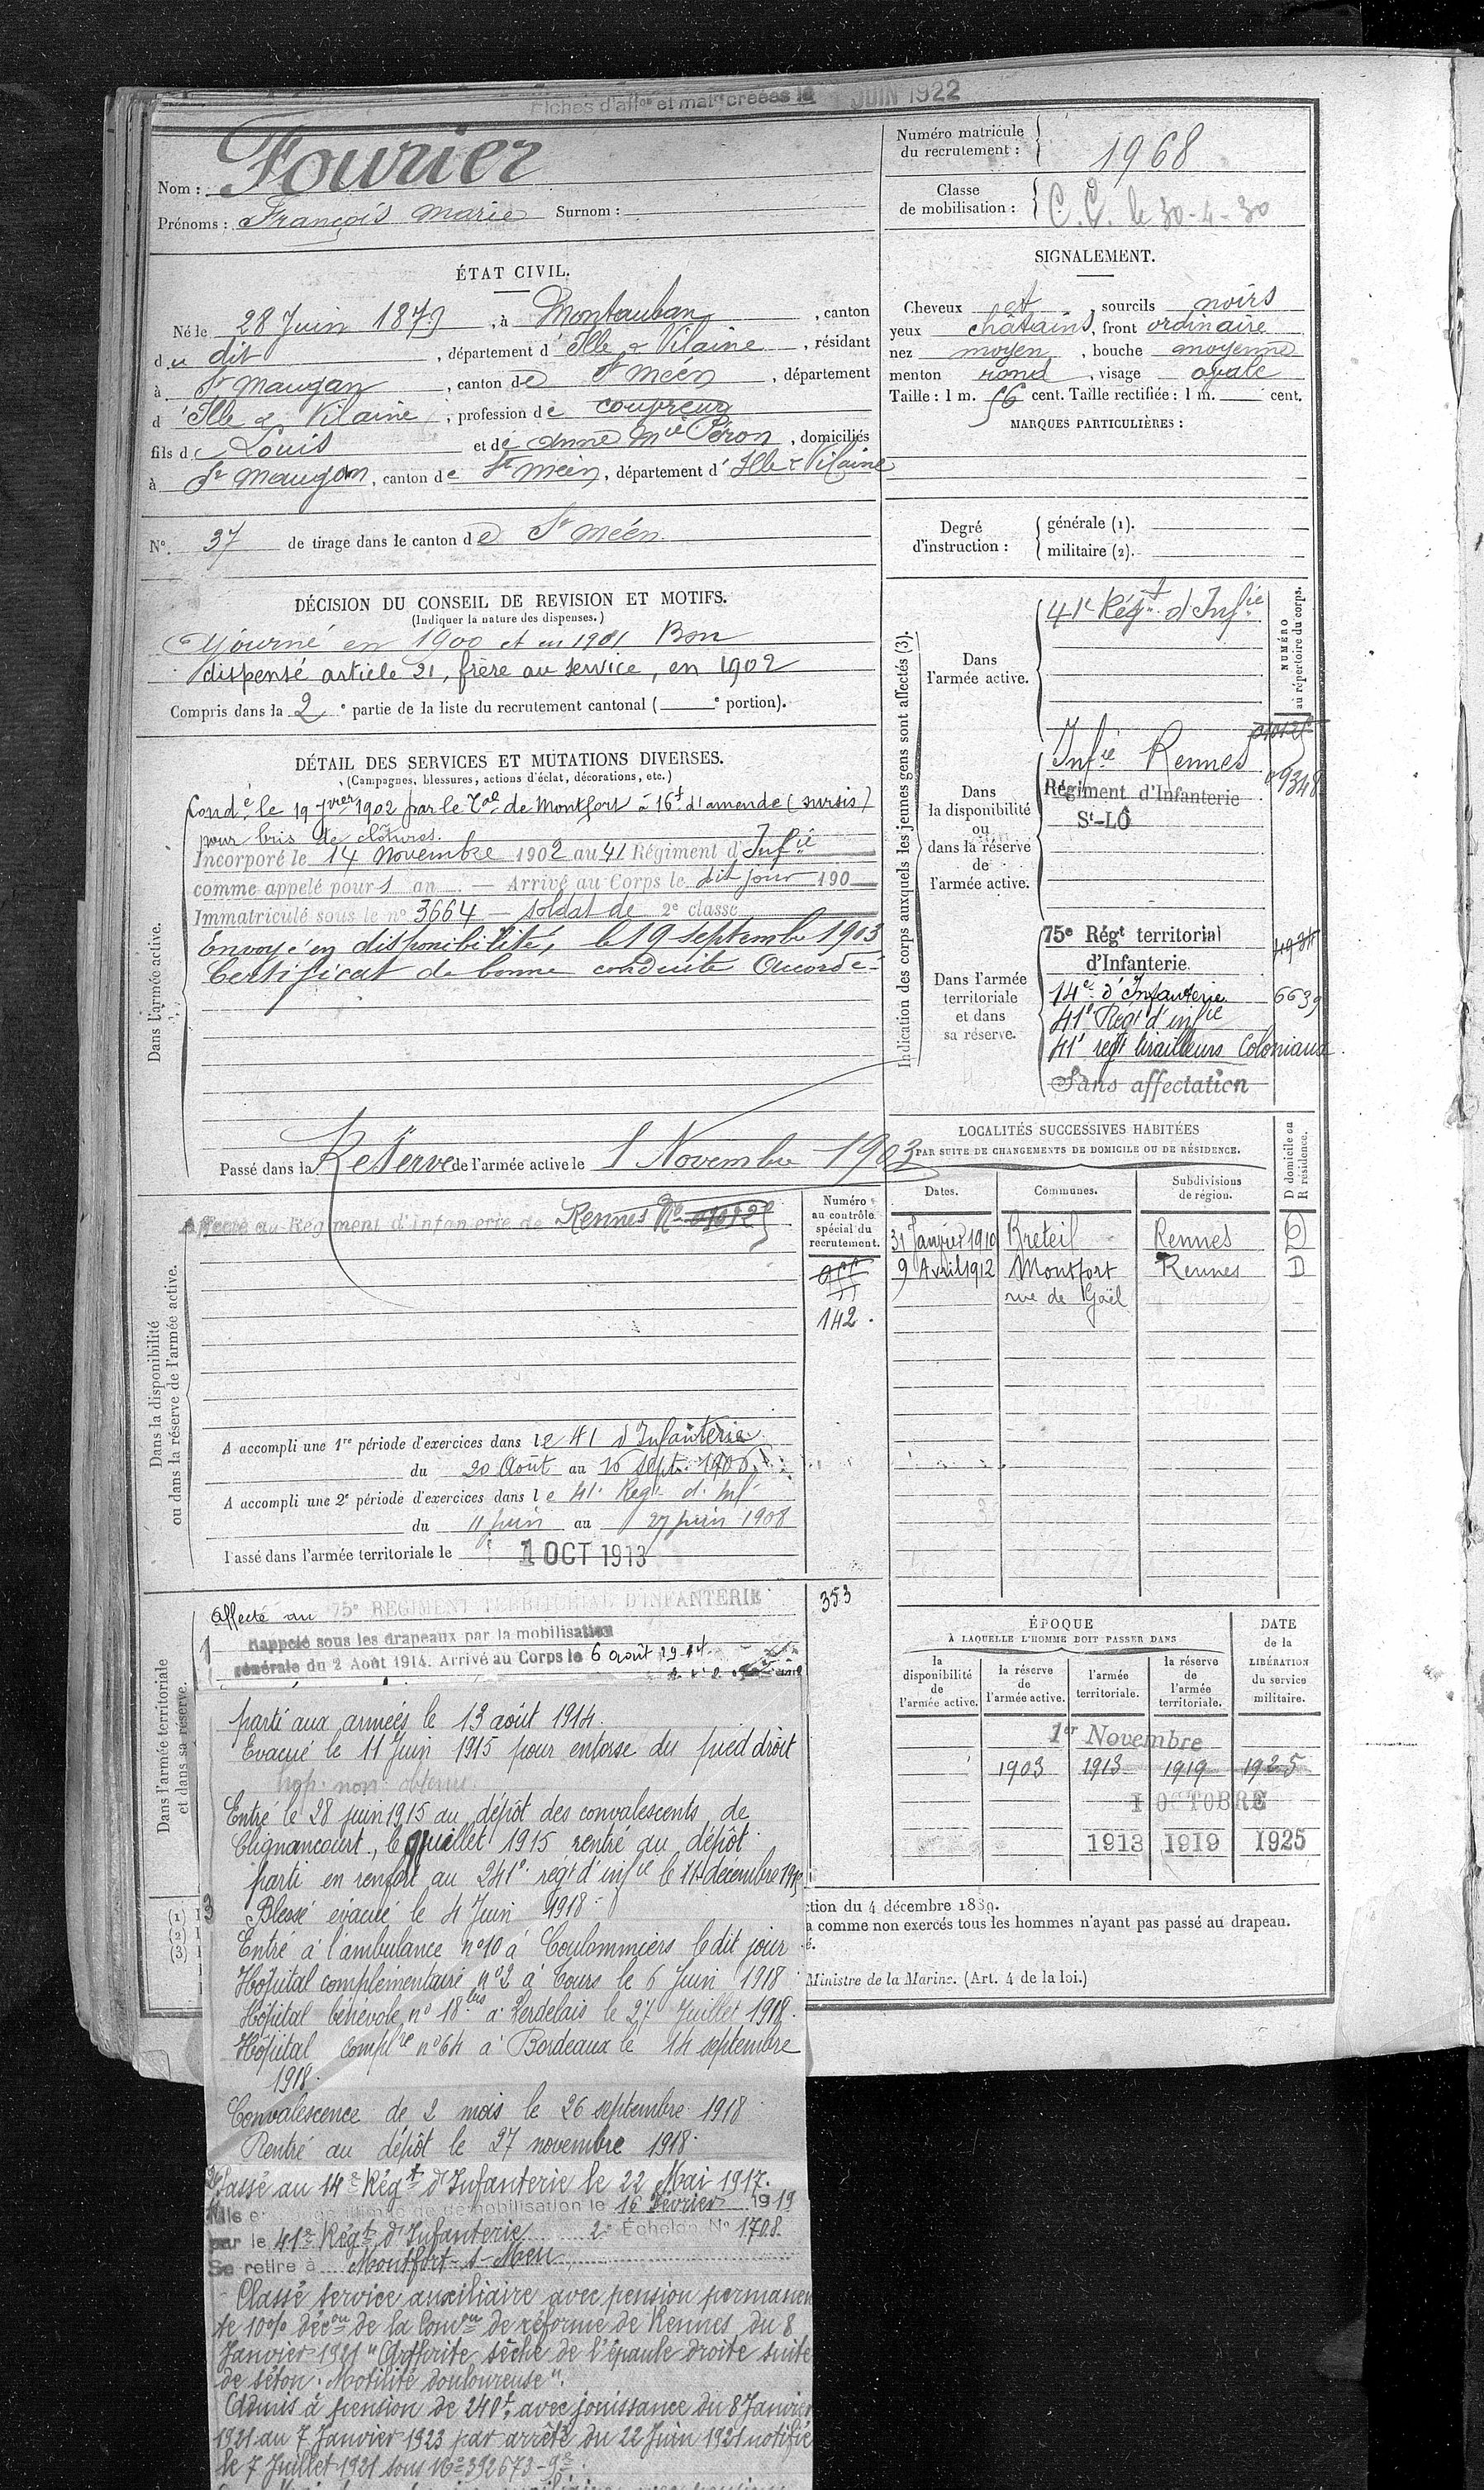 Fiches d'aff<sup>on</sup> et mat<sup>le</sup> créées le JUIN 1922
Nom : Fourier
Prénoms : François Marie Surnom :
Numéro matricule du recrutement : 1968
Classe de mobilisation : C. C. le 30-4-30
ÉTAT CIVIL.
Né le 28 Juin 1879, à Montauban, canton
du dit, département d'Ille & Vilaine, résidant
à St Maugan, canton de St Méen, département
d'Ille & Vilaine, profession de
fils de Louis et de Anne Mie Péron, domiciliés
à St Maugan, canton de St Méen, département d'Ille & Vilaine
No. 37 de tirage dans le canton de St Méen
SIGNALEMENT.
Cheveux et, sourcils noirs
yeux châtains, front ordinaire
nez moyen, bouche moyenne
menton rond, visage ovale
Taille : 1 m. 56 cent. Taille rectifiée : 1 m. cent.
MARQUES PARTICULIÈRES :
Degré d'instruction : générale (1).
militaire (2).
DÉCISION DU CONSEIL DE REVISION ET MOTIFS.
(Indiquer la nature des dispenses.)
Ajourné en 1900 et en 1901 Bon
dispensé article 21, frère au service, en 1902
Compris dans la 2e partie de la liste du recrutement cantonal ( e portion).
DÉTAIL DES SERVICES ET MUTATIONS DIVERSES.
(Campagnes, blessures, actions d'éclat, décorations, etc.)
Dans l'armée active.
Condé le 19 1902 par le Tal de Montfort à 16f d'amende (sursis)
pour bris de clôtures.
Incorporé le 14 Novembre 1902 au 41 Régiment d'Infie
comme appelé pour 1 an. — Arrivé au Corps le dit jour 190
Immatriculé sous le no 3664 — soldat de 2e classe
Envoyé en disponibilité, le 19 septembre 1903
Certificat de bonne conduite Accordé
Passé dans la Réserve de l'armée active le 1 Novembre 1903
Indication des corps auxquels les jeunes gens sont affectés (3).
NUMÉRO au répertoire du corps.
Dans l'armée active.
41e Régt d'Infie
Dans la disponibilité ou dans la réserve de l'armée active.
Infie Rennes
Régiment d'Infanterie
St-LÔ
09348
Dans l'armée territoriale et dans sa réserve.
75e Régt territorial
d'Infanterie.
14e d'Infanterie 6639
41e Régt d'infie
41e régt tirailleurs Coloniaux
Sans affectation
LOCALITÉS SUCCESSIVES HABITÉES
PAR SUITE DE CHANGEMENTS DE DOMICILE OU DE RÉSIDENCE.
Dates. Communes. Subdivisions de région. D domicile ou R résidence.
31 Janvier 1910 Breteil Rennes D
9 Avril 1912 Montfort Rennes D
rue de Gaël
Dans la disponibilité
ou dans la réserve de l'armée active.
Affecté au Régiment d'Infanterie de Rennes No
Numéro au contrôle spécial du recrutement.
142
A accompli une 1re période d'exercices dans le 41 d'Infanterie
du 20 Août au 16 Sept. 1906
A accompli une 2e période d'exercices dans le 41e Regt d'Inf
du 11 juin au 27 juin 1908
Passé dans l'armée territoriale le 1 OCT 1913
Dans l'armée territoriale
et dans sa réserve.
Affecté au 75e RÉGIMENT TERRITORIAL D'INFANTERIE
353
Rappelé sous les drapeaux par la mobilisation
générale du 2 Août 1914. Arrivé au Corps le 6 août 1914
parti aux armées le 13 août 1914.
Evacué le 11 Juin 1915 pour entorse du pied droit
hop. non obtenu
Entré le 28 juin 1915 au dépôt des convalescents de
Clignancourt, le 9 juillet 1915 rentré au dépôt.
parti en renfort au 241e régt d'infie le 11 décembre 1915
Blessé évacué le 4 Juin 1918.
Entré à l'ambulance no 10 à Coulommiers le dit jour
Hôpital complémentaire no 2 à Tours le 6 Juin 1918
Hôpital bénévole no 18 bis à Verdelais le 27 Juillet 1918.
Hôpital complre no 64 à Bordeaux le 14 septembre
1918.
Convalescence de 2 mois le 26 septembre 1918
Rentré au dépôt le 27 novembre 1918.
Passé au 14e Régt d'Infanterie le 22 Mai 1917.
Mis en de démobilisation le 16 Février 1919
par le 41e Régt d'Infanterie 2e Echelon No 1708.
Se retire à Montfort-s-Meu
Classé service auxiliaire avec pension permanen
te 10% décon de la Comon de réforme de Rennes du 8
Janvier 1921 "Arthrite sèche de l'épaule droite suite
de séton. Motilité douloureuse".
Admis à pension de 240f avec jouissance du 8 Janvier
1921 au 7 Janvier 1923 par arrêté du 22 Juin 1921 notifié
le 7 Juillet 1921 sous No 392673-9e
ÉPOQUE
À LAQUELLE L'HOMME DOIT PASSER DANS
la disponibilité de l'armée active. la réserve de l'armée active. l'armée territoriale. la réserve de l'armée territoriale.
DATE de la LIBÉRATION du service militaire.
1er Novembre
1903 1913 1919 1925
1 OCTOBRE
1913 1919 1925
(1) I
(2) I
(3) I
ction du 4 décembre 1889.
a comme non exercés tous les hommes n'ayant pas passé au drapeau.
é.
Ministre de la Marine. (Art. 4 de la loi.)